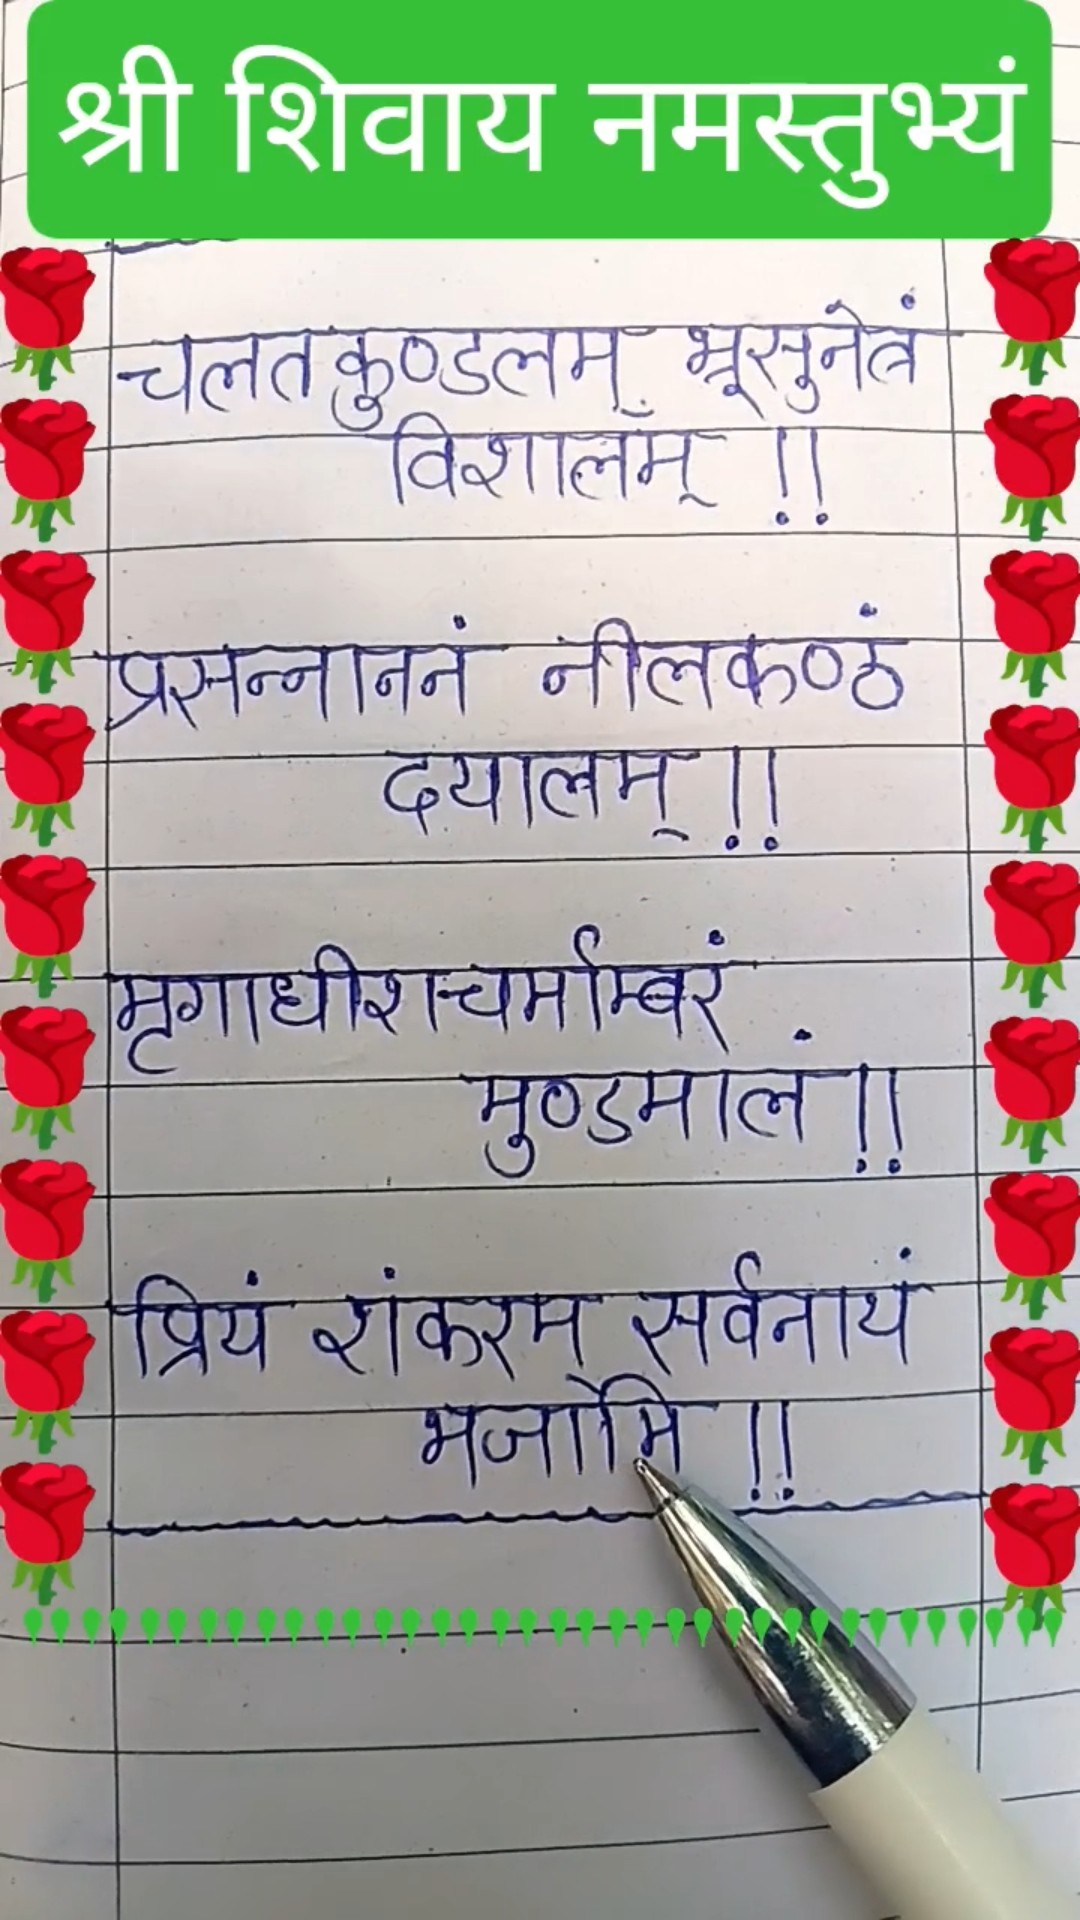 श्री शिवाय नमस्तुभ्यं
चलतकुण्डलम् भ्रूसुनेत्रं
विशालम् !!
प्रसन्नाननं नीलकण्ठं
दयालम् !!
मृगाधीशचर्माम्बरं
मुण्डमालं !!
प्रियं शंकरम सर्वनाथं
भजामि !!